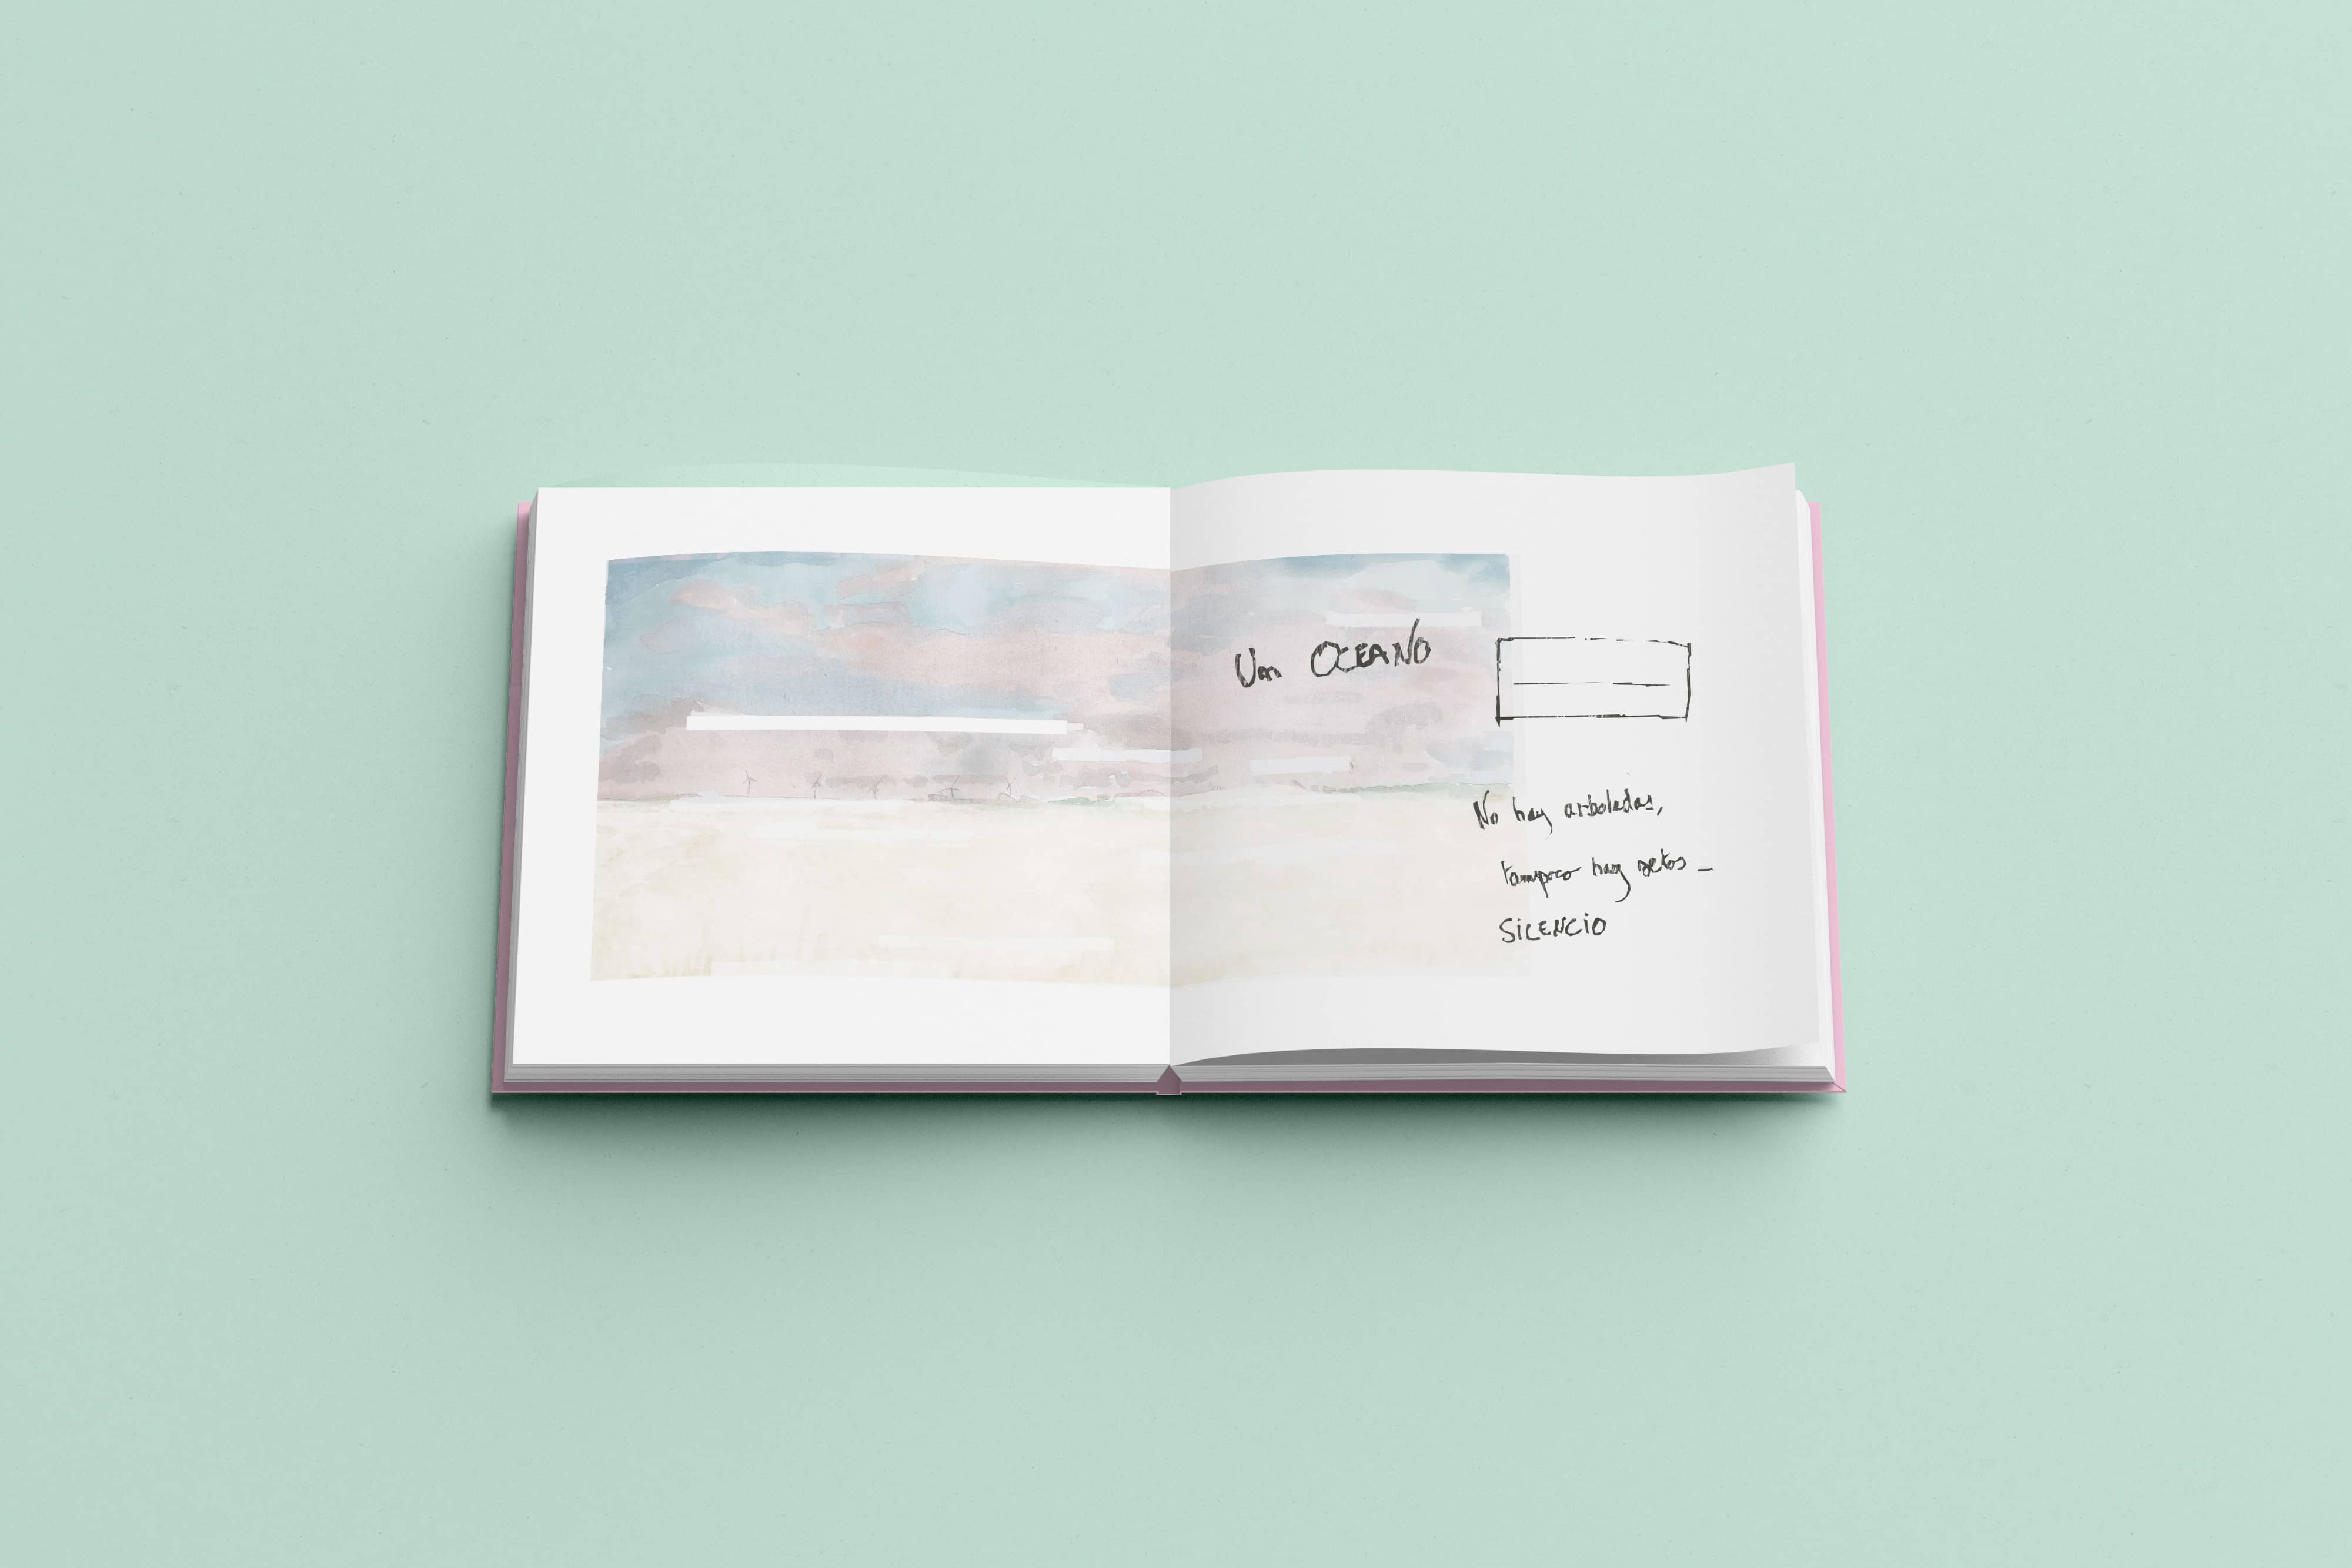 Un OCEANO
No hay arboledas,
tampoco hay setos _
SiLENCiO